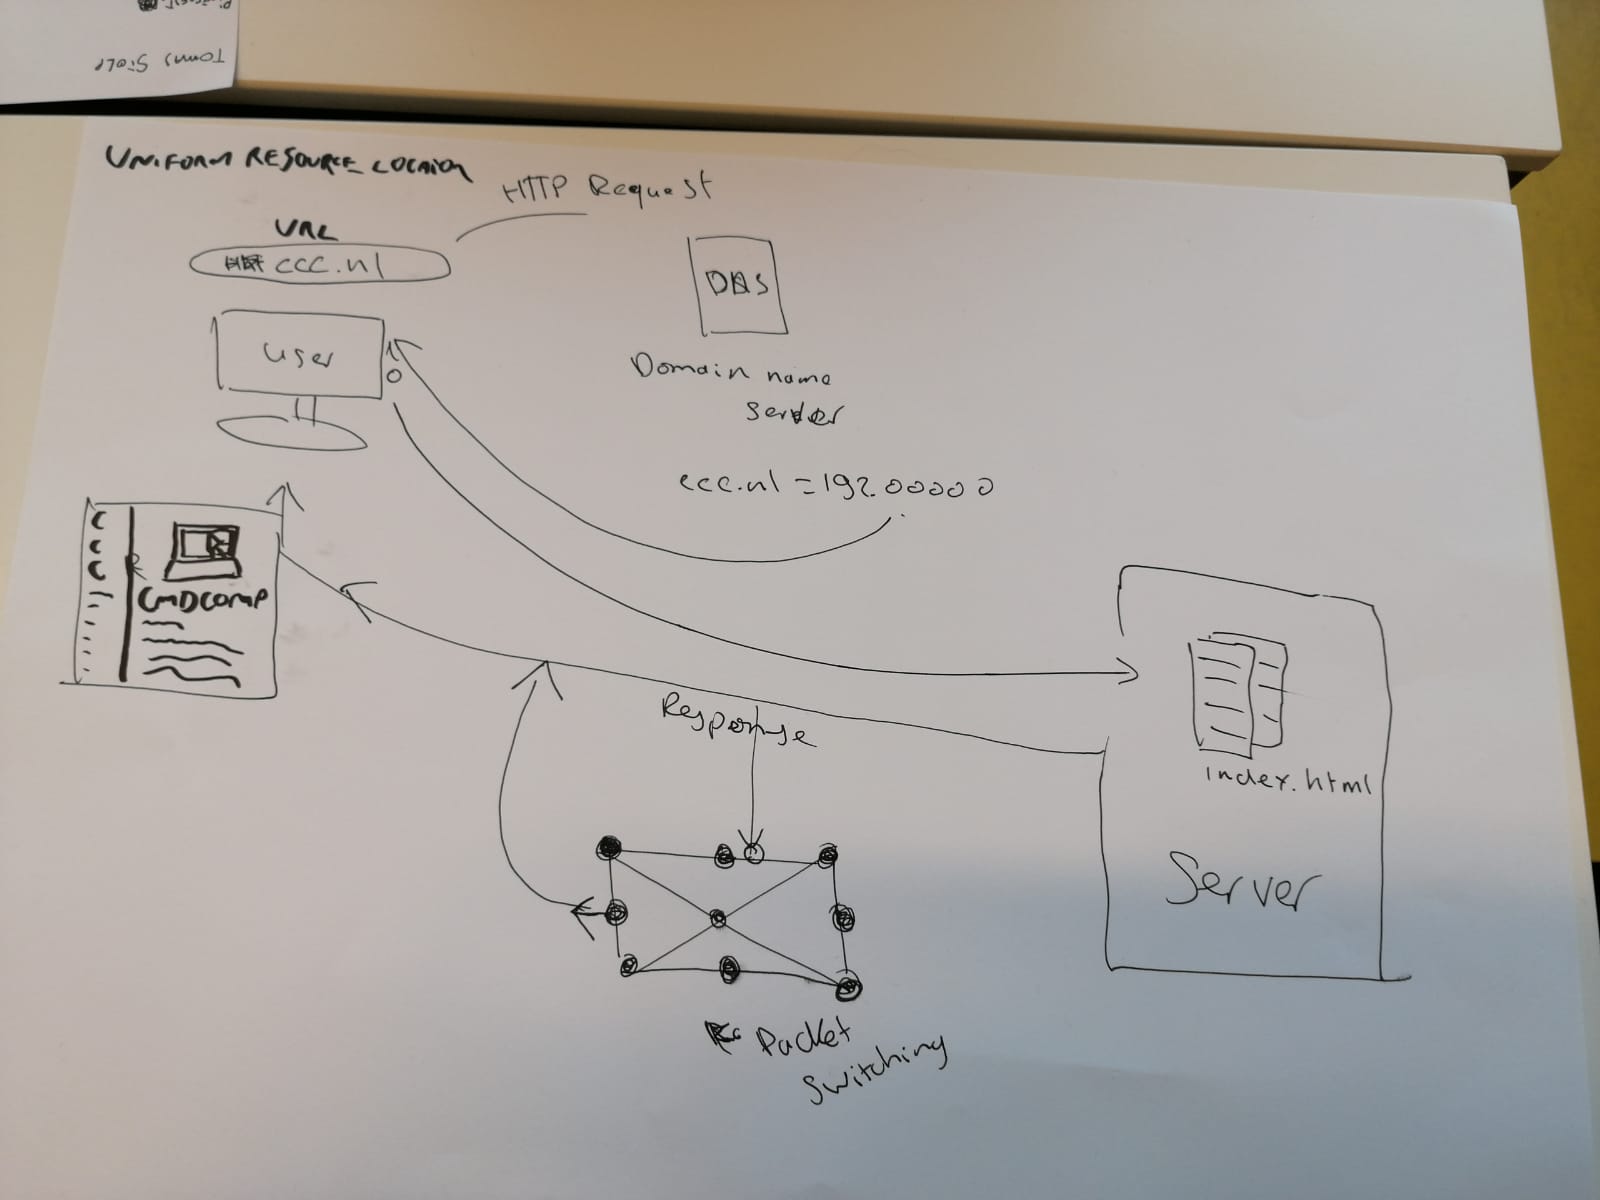 Toms Stolp
UNIFORM RESOURCE LOCATOR
HTTP Request
URL
ccc.nl
DNS
user
Domain name
server
ccc.nl = 192.00000
CMDCOMP
Response
index.html
Server
Packet
Switching